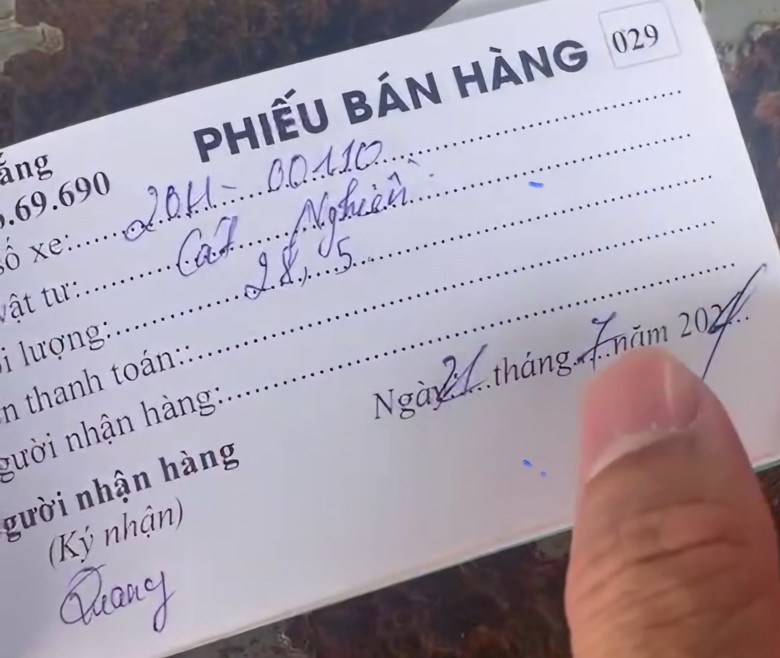 PHIẾU BÁN HÀNG 029
ăng
.69.690
số xe: 20H-00110
vật tư: Cát Nghiền
i lượng: 28,5
n thanh toán:
gười nhận hàng:
Ngày 21 tháng 7 năm 202
gười nhận hàng
(Ký nhận)
Quang